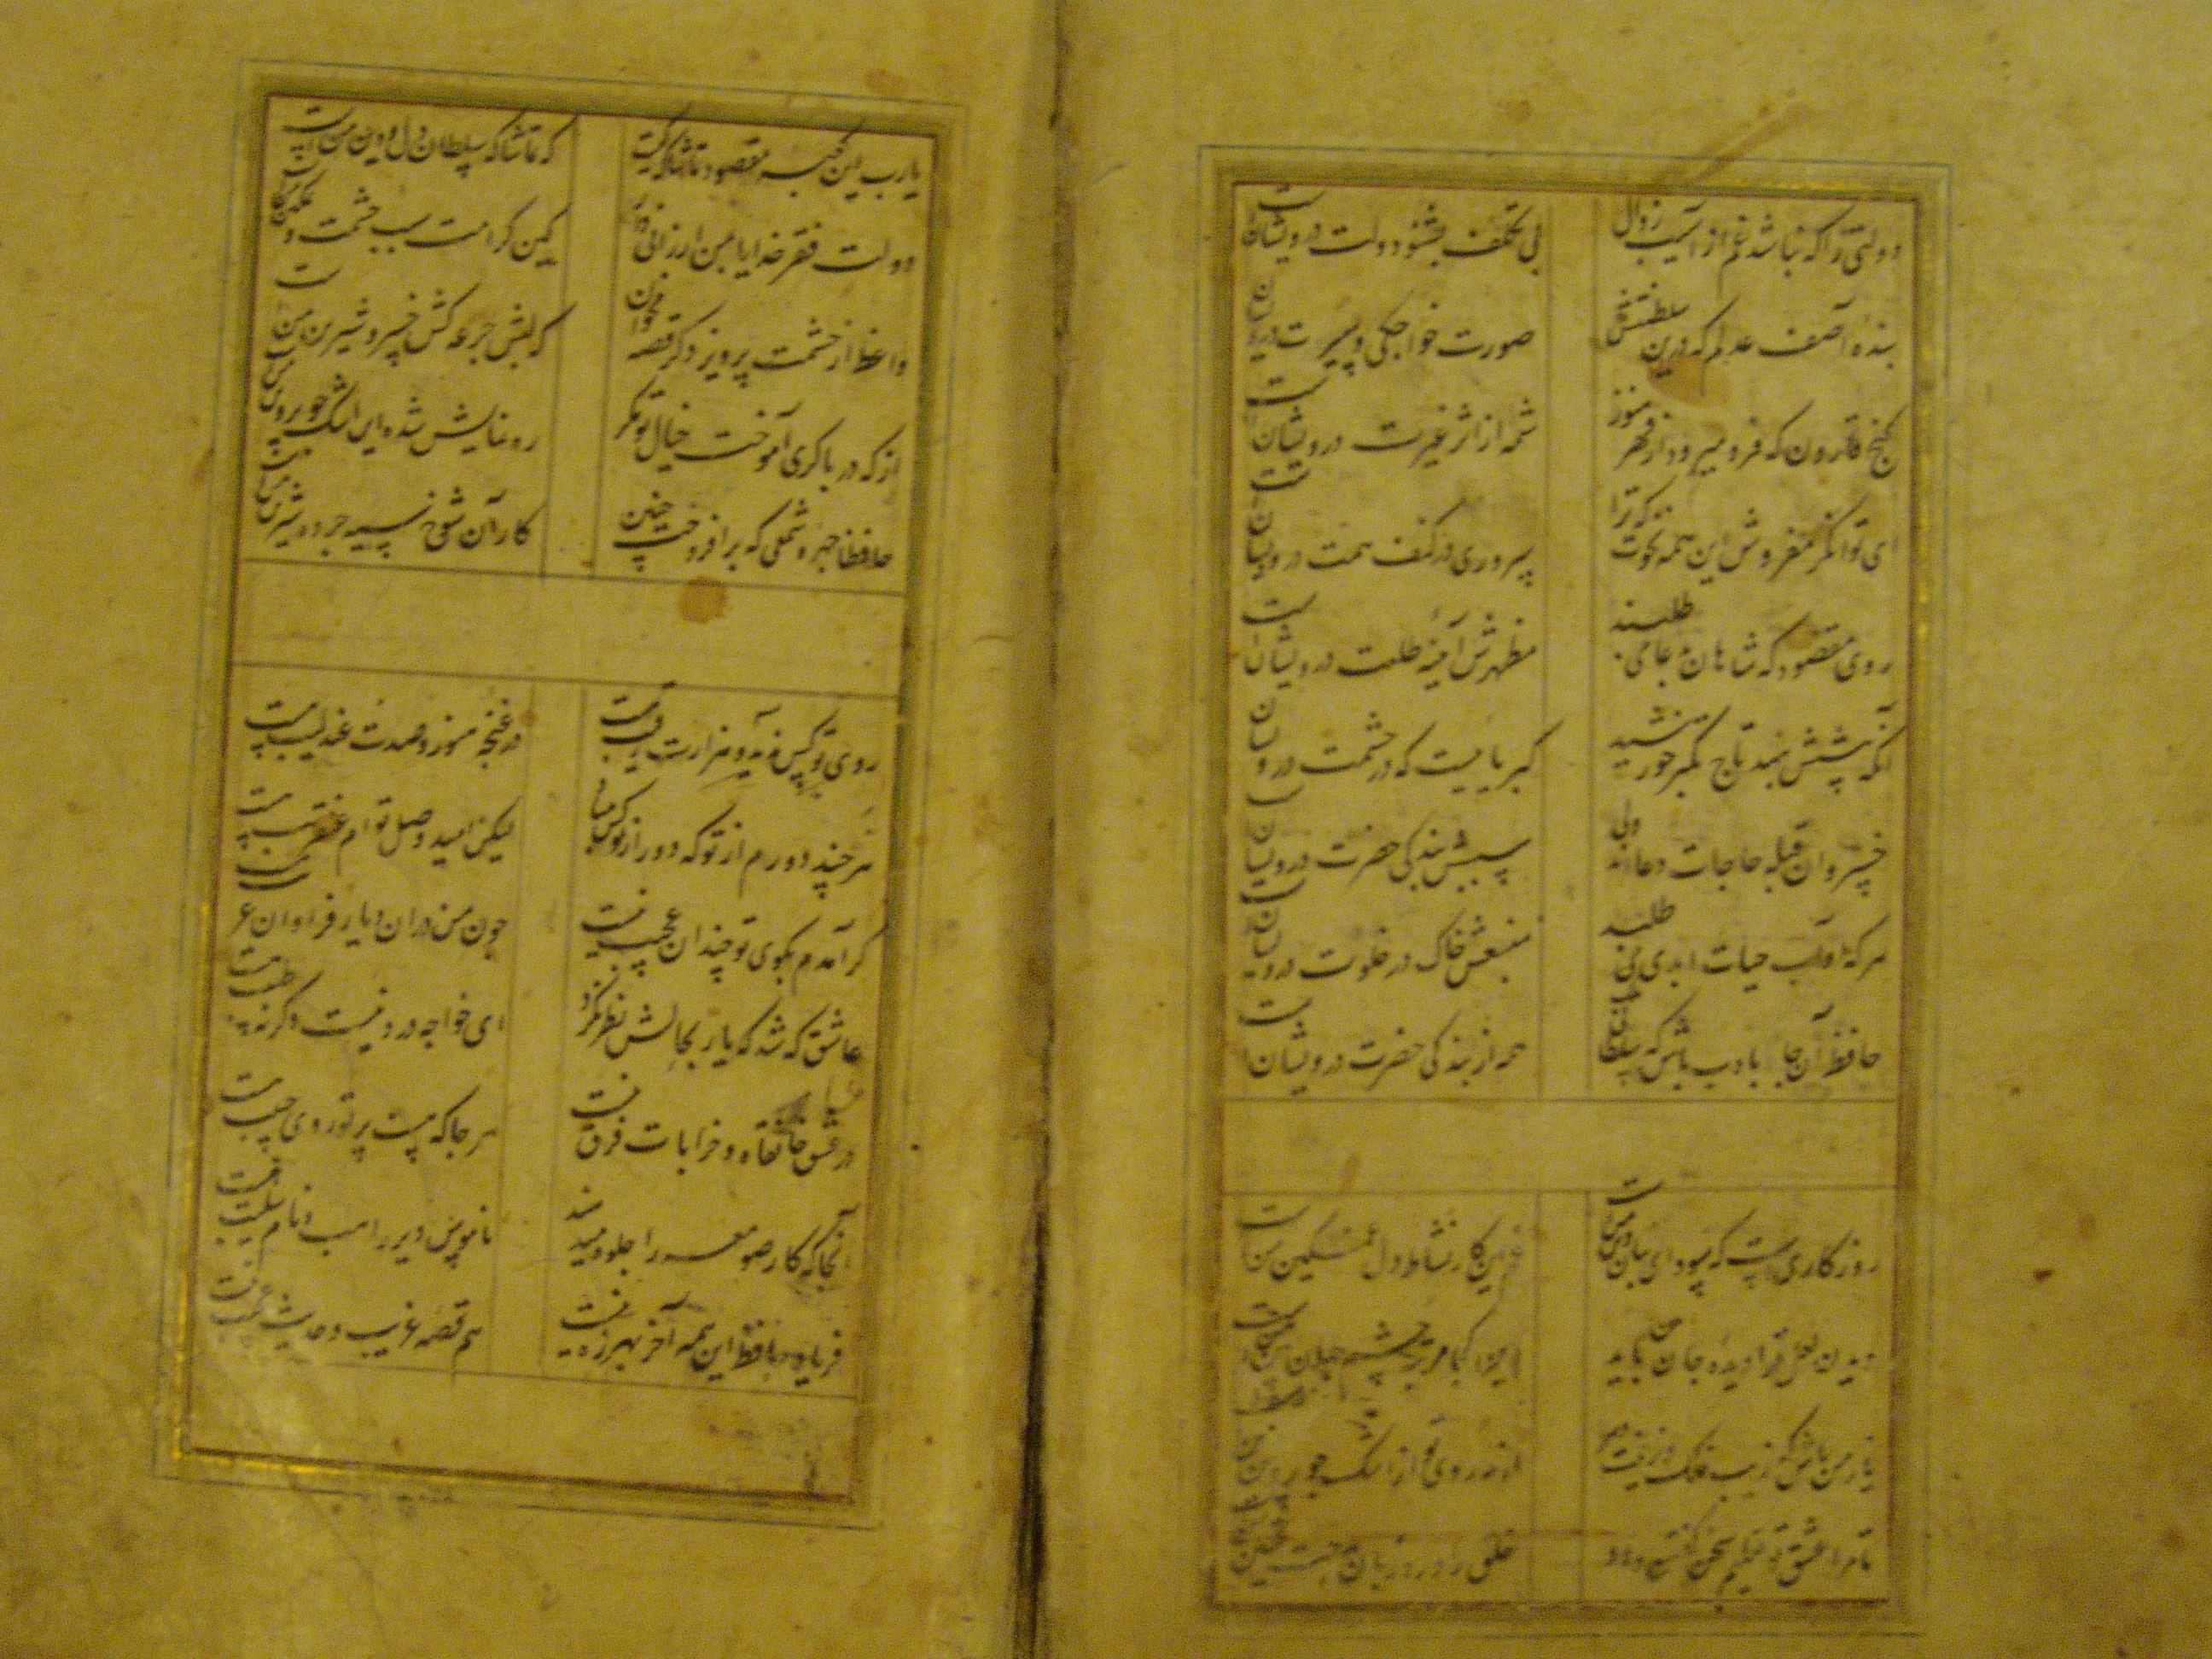 دولتی را که نباشد غم از آسیب زوال
بی تکلف بشنو دولت درویشانست
بنده آصف عهدم که درین سلطنتش
صورت خواجگی و سیرت درویشانست
گنج قارون که فرو میرود از قهر هنوز
شمه از اثر غیرت درویشانست
ای توانگر مفروش این همه نخوت که ترا
سروری در کنف همت درویشانست
روی مقصود که شاهان بدعا می طلبند
مظهرش آینه طلعت درویشانست
آنکه پیشش بنهد تاج تکبر خورشید
کبریاییست که در حشمت درویشانست
خسروان قبله حاجات دعااند ولی
سببش بندگی حضرت درویشانست
هر که او آب حیات ابدی می طلبد
منبعش خاک در خلوت درویشانست
حافظ آن جا بادب باش که سلطانی
همه از بندگی حضرت درویشانست
روزکاریست که سودای بتان دین منست
غم این کار نشاط دل غمگین منست
دیدن لعل ترا دیده جان بین باید
این کجا مرتبه چشم جهان بین منست
یار من باش که زیب فلک و زینت دهر
از مه روی تو از اشک چو پروین منست
تا مرا عشق تو تعلیم سخن گفتن داد
خلق را ورد زبان مدحت تحسین منست
یارب این کعبه مقصود تماشاگه کیست
که تماشاگه سلطان دل و دین منست
دولت فقر خدایا بمن ارزانی دار
کین کرامت سبب حشمت و تمکین منست
واعظ از حشمت پرویز دگر قصه مخوان
که لبش جرعه کش خسرو شیرین منست
از که دریا گری آموخت خیال تو مگر
ره نمایش شده این اشک چو پروین منست
حافظا چهره شمعی که برافروخت چنین
کار آن شوخ سیه چرده شیرین منست
روی تو کس ندید و هزارت رقیب هست
در غنچه هنوز و صدت عندلیب هست
هر چند دورم از تو که دور از تو کس مباد
لیکن امید وصل توام عنقریب هست
گر آمدم بکوی تو چندان عجیب نیست
چون من در آن دیار فراوان غریب هست
عاشق که شد که یار بحالش نظر نکرد
ای خواجه درد نیست وگرنه طبیب هست
در عشق خانقاه و خرابات فرق نیست
هر جا که هست پرتو روی حبیب هست
آنجا که کار صومعه را جلوه میدهند
ناموس دیر راهب و نام صلیب هست
فریاد حافظ این همه آخر بهرزه نیست
هم قصه غریب و حدیث عجیب هست